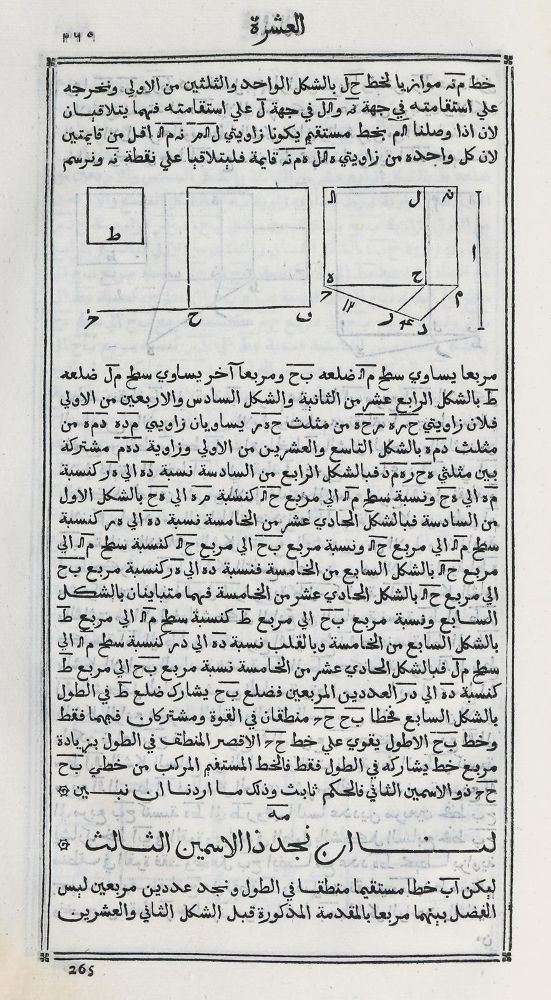 العشرة
٢٦٥
خط مٓنٓه موازيا لخط حٓلٓ بالشكل الواحد والثلثين من الاولي ونخرجه
علي استقامته في جهة نٓه ولل في جهة لٓ علي استقامته فهما يتلاقيان
لان اذا وصلنا بخط مستقيم يكونا زاويتي اقل من قايمتين
لان كل واحدة من زاويتي قايمة فليتلاقيا علي نقطة نه ونرسم
ط
ح
ف
ل
ح
م
د
ا
١٢
مربعا يساوي سطح ضلعه بح ومربعا آخر يساوي سطح مل ضلعه
ط بالشكل الرابع عشر من الثانية والشكل السادس والاربعين من الاولي
فلان زاويتي من مثلث يساويان زاويتي من
مثلث دمه بالشكل التاسع والعشرين من الاولي وزاوية دهم مشتركة
بين مثلثي فبالشكل الرابع من السادسة نسبة ده الي هر كنسبة
مه الي هح ونسبة سطح الي مربع كنسبة مه الي هح بالشكل الاول
من السادسة فبالشكل الحادي عشر من الخامسة نسبة ده الي هر كنسبة
سطح الي مربع ونسبة مربع بح الي مربع كنسبة سطح الي
مربع بالشكل السابع من الخامسة فنسبة ده الي هر كنسبة مربع بح
الي مربع بالشكل الحادي عشر من الخامسة فهما متباينان بالشكل
السابع ونسبة مربع بح الي مربع ط كنسبة سطح الي مربع ط
بالشكل السابع من الخامسة وبالقلب نسبة ده الي در كنسبة سطح الي
سطح مل فبالشكل الحادي عشر من الخامسة نسبة مربع بح الي مربع ط
كنسبة ده الي در العددين المربعين فضلع بح يشارك ضلع ط في الطول
بالشكل السابع فخطا بح منطقان في القوة ومشتركان فيهما فقط
وخط بح الاطول يقوي علي خط الاقصر المنطق في الطول بزيادة
مربع خط يشاركه في الطول فقط فالخط المستقيم المركب من خطي بح
ذو الاسمين الثاني فالحكم ثابت وذلك ما اردنا ان نبين
مه
لنا ان نجد ذا الاسمين الثالث
ليكن اب خطا مستقيما منطقا في الطول ونجد عددين مربعين ليس
الفضل بينهما مربعا بالمقدمة المذكورة قبل الشكل الثاني والعشرين
من
265